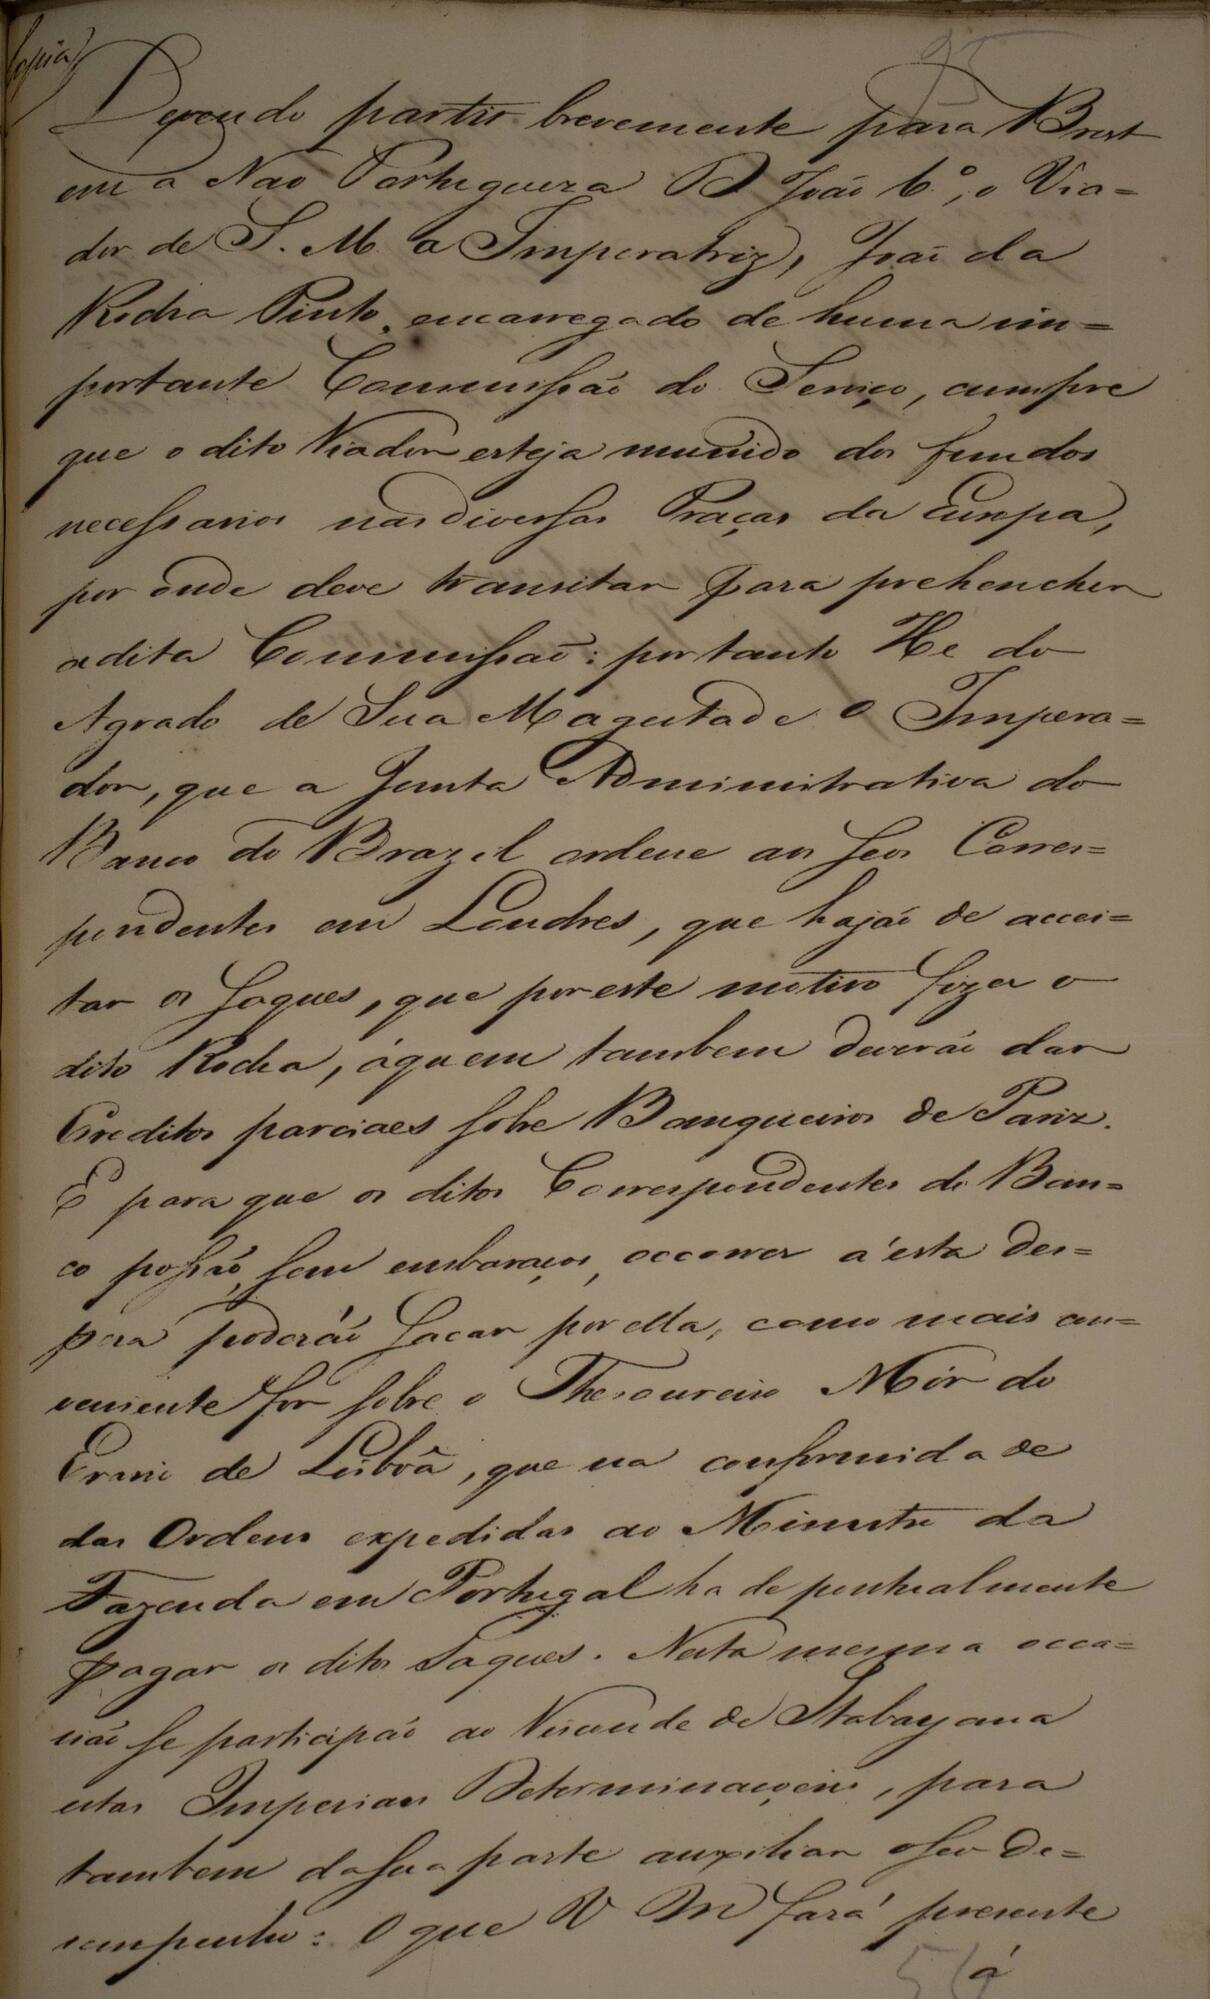 Copia
95
Devendo partir brevemente para Brest
em a Nao Portugueza D João 6.º, o Via=
dor de S. M. a Imperatriz, João da
Rocha Pinto, encarregado de huma im=
portante Commissão do Serviço, cumpre
que o dito Viador esteja munido dos fundos
necessarios nas diversas Praças da Europa,
por onde deve transitar para prehencher
a dita Commissaõ: por tanto He do
Agrado de Sua Magestade O Impera=
dor, que a Junta Administrativa do
Banco do Brazil ordene aos seos Corres=
pondentes em Londres, que hajão de accei=
tar os saques, que por este motivo fizer o
dito Rocha, áquem tambem deverão dar
Creditos parciaes sobre Banqueiros de Pariz.
E para que os ditos Correspondentes do Ban=
co possão, sem embaraços, occorrer a ésta des=
peza poderáõ sacar por ella, como mais con=
veniente for sobre o Thesoureiro Mór do
Erario de Lisbôa, que na conformidade
das Ordens expedidas ao Ministro da
Fazenda em Portugal ha de pontualmente
pagar os ditos Saques. Nesta mesma occa=
sião se participão ao Visconde de Itabayana
estas Imperiaes Determinaçoens, para
tambem da sua parte auxiliar o seo de=
sempenho: O que V M fará presente
á